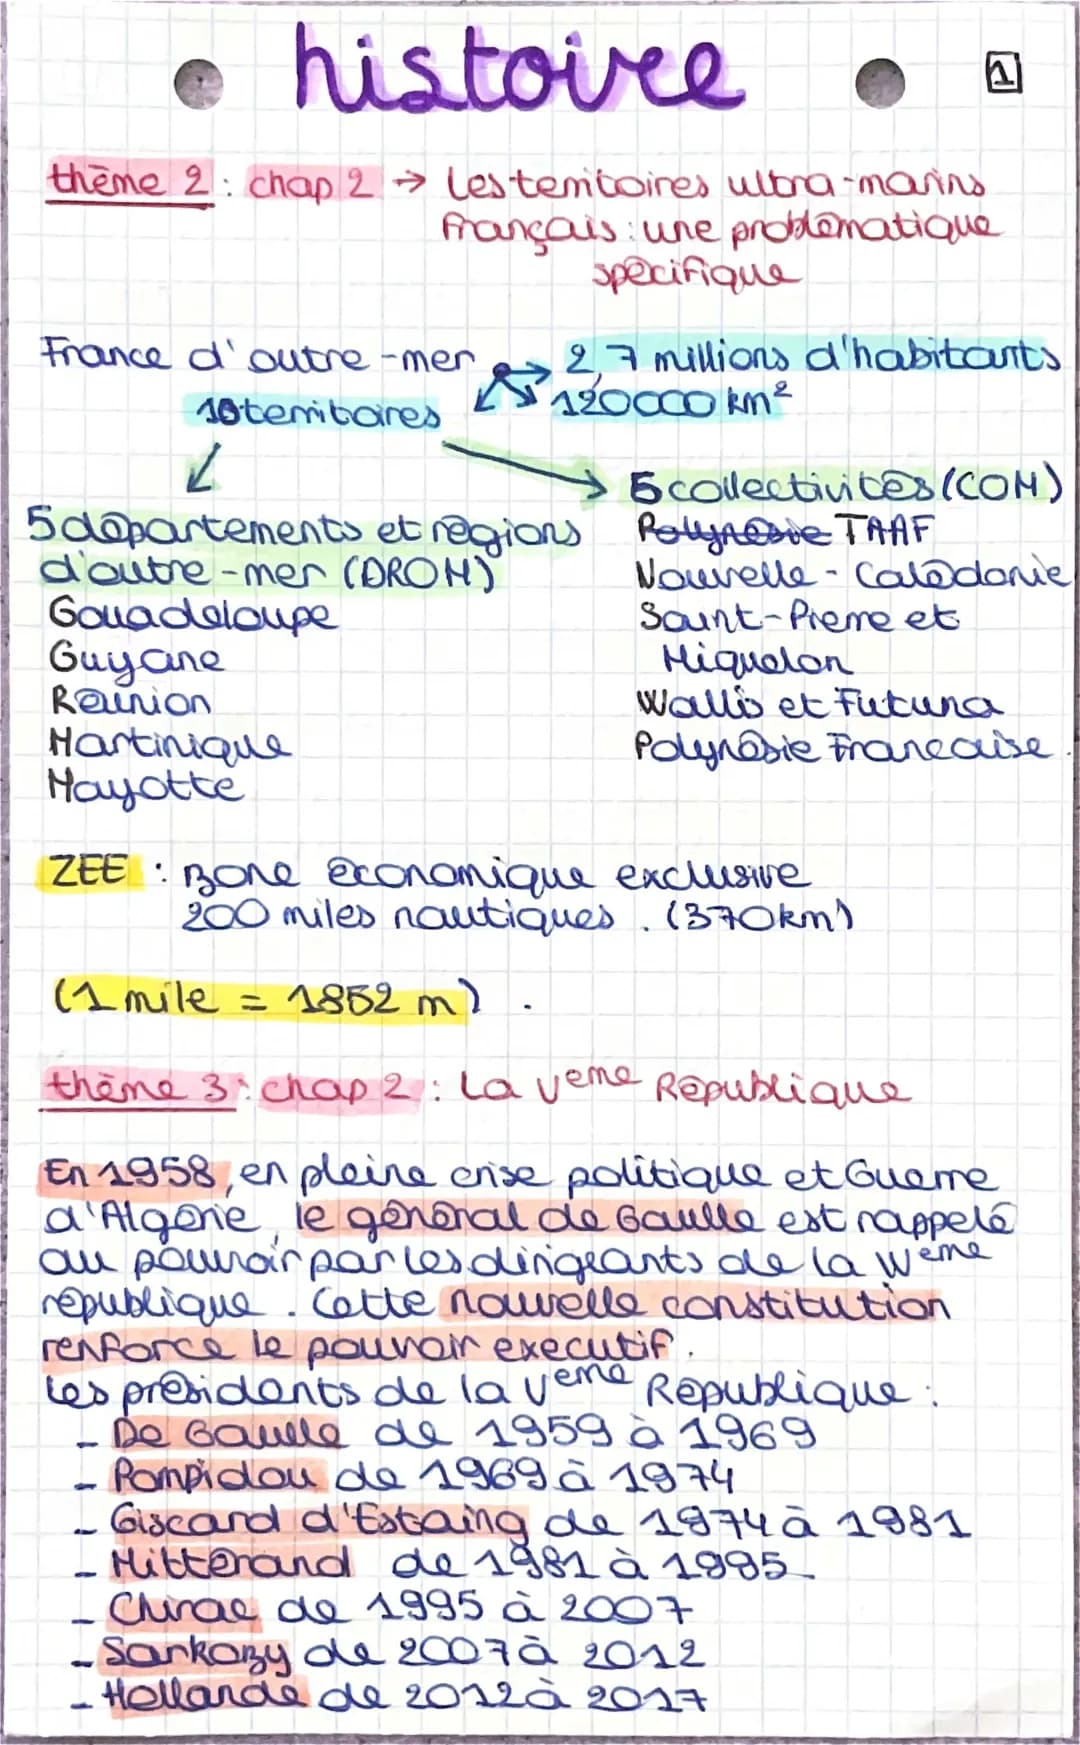 histoire
1
thème 2 : chap 2 → Les territoires ultra-marins
français : une problématique
spécifique
France d'outre-mer → 2,7 millions d'habitants
10 territoires 120000 km²
5 collectivités (COM)
5 départements et régions
d'outre-mer (DROM)
Polynésie TAAF
Nouvelle-Calédonie
Gouadeloupe
Saint-Pierre et
Guyane
Miquelon
Réunion
Wallis et Futuna
Martinique
Polynésie Francaise.
Mayotte
ZEE : zone économique exclusive
200 miles nautiques. (370km)
(1 mile = 1852 m).
thème 3 : chap 2 : La Veme République
En 1958, en pleine crise politique et Guerre
d'Algérie, le général de Gaulle est rappelé
au pouvoir par les dirigeants de la IVeme
république. Cette nouvelle constitution
renforce le pouvoir executif.
Les présidents de la Veme République :
- De Gaulle de 1959 à 1969
- Pompidou de 1969 à 1974
- Giscard d'Estaing de 1974 à 1981
- Mitterand de 1981 à 1995
- Chirac de 1995 à 2007
- Sarkozy de 2007 à 2012
- Hollande de 2012 à 2017